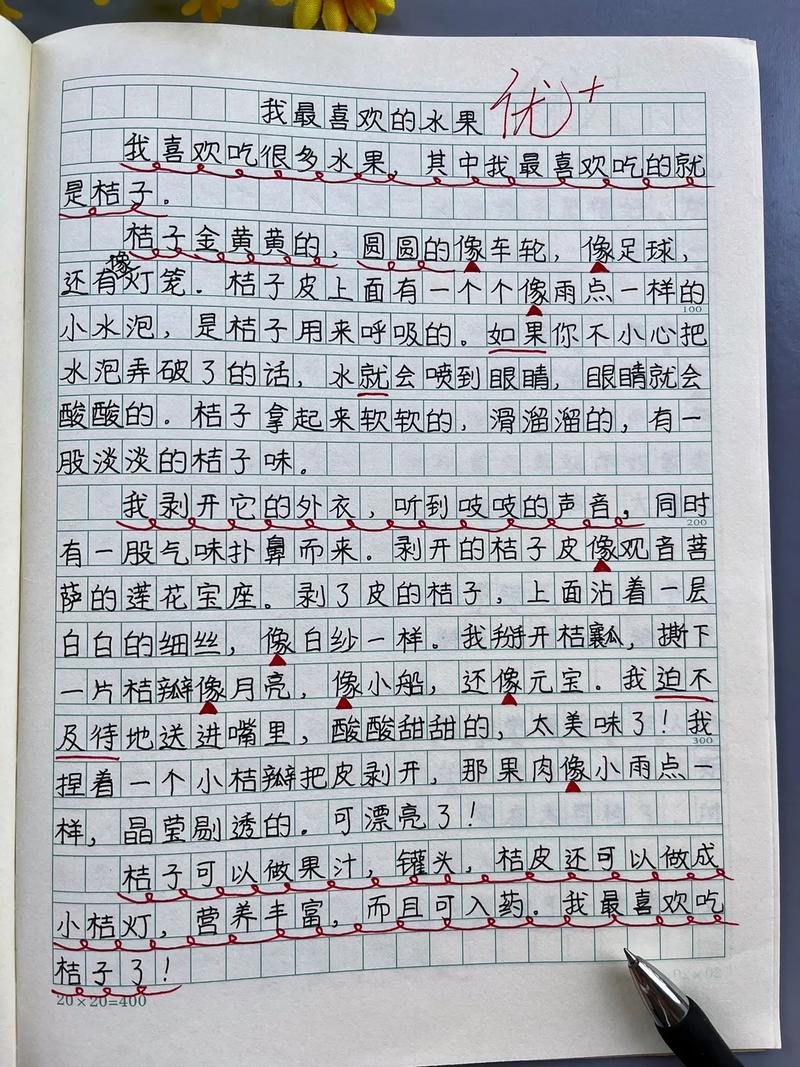 我最喜欢的水果 优+
我喜欢吃很多水果，其中我最喜欢吃的就
是桔子。
桔子金黄黄的，圆圆的像车轮，像足球，
还有像灯笼．桔子皮上面有一个个像雨点一样的
100
小水泡，是桔子用来呼吸的。如果你不小心把
水泡弄破了的话，水就会喷到眼睛，眼睛就会
酸酸的．桔子拿起来软软的，滑溜溜的，有一
股淡淡的桔子味。
我剥开它的外衣，听到吱吱的声音，同时
200
有一股气味扑鼻而来．剥开的桔子皮像观音菩
萨的莲花宝座。剥了皮的桔子，上面沾着一层
白白的细丝，像白纱一样。我掰开桔瓤，撕下
一片桔瓣像月亮，像小船，还像元宝。我迫不
及待地送进嘴里，酸酸甜甜的，太美味了！我
300
捏着一个小桔瓣把皮剥开，那果肉像小雨点一
样，晶莹剔透的。可漂亮了！
桔子可以做果汁，罐头，桔皮还可以做成
小桔灯，营养丰富，而且可入药。我最喜欢吃
桔子了！
20×20=400